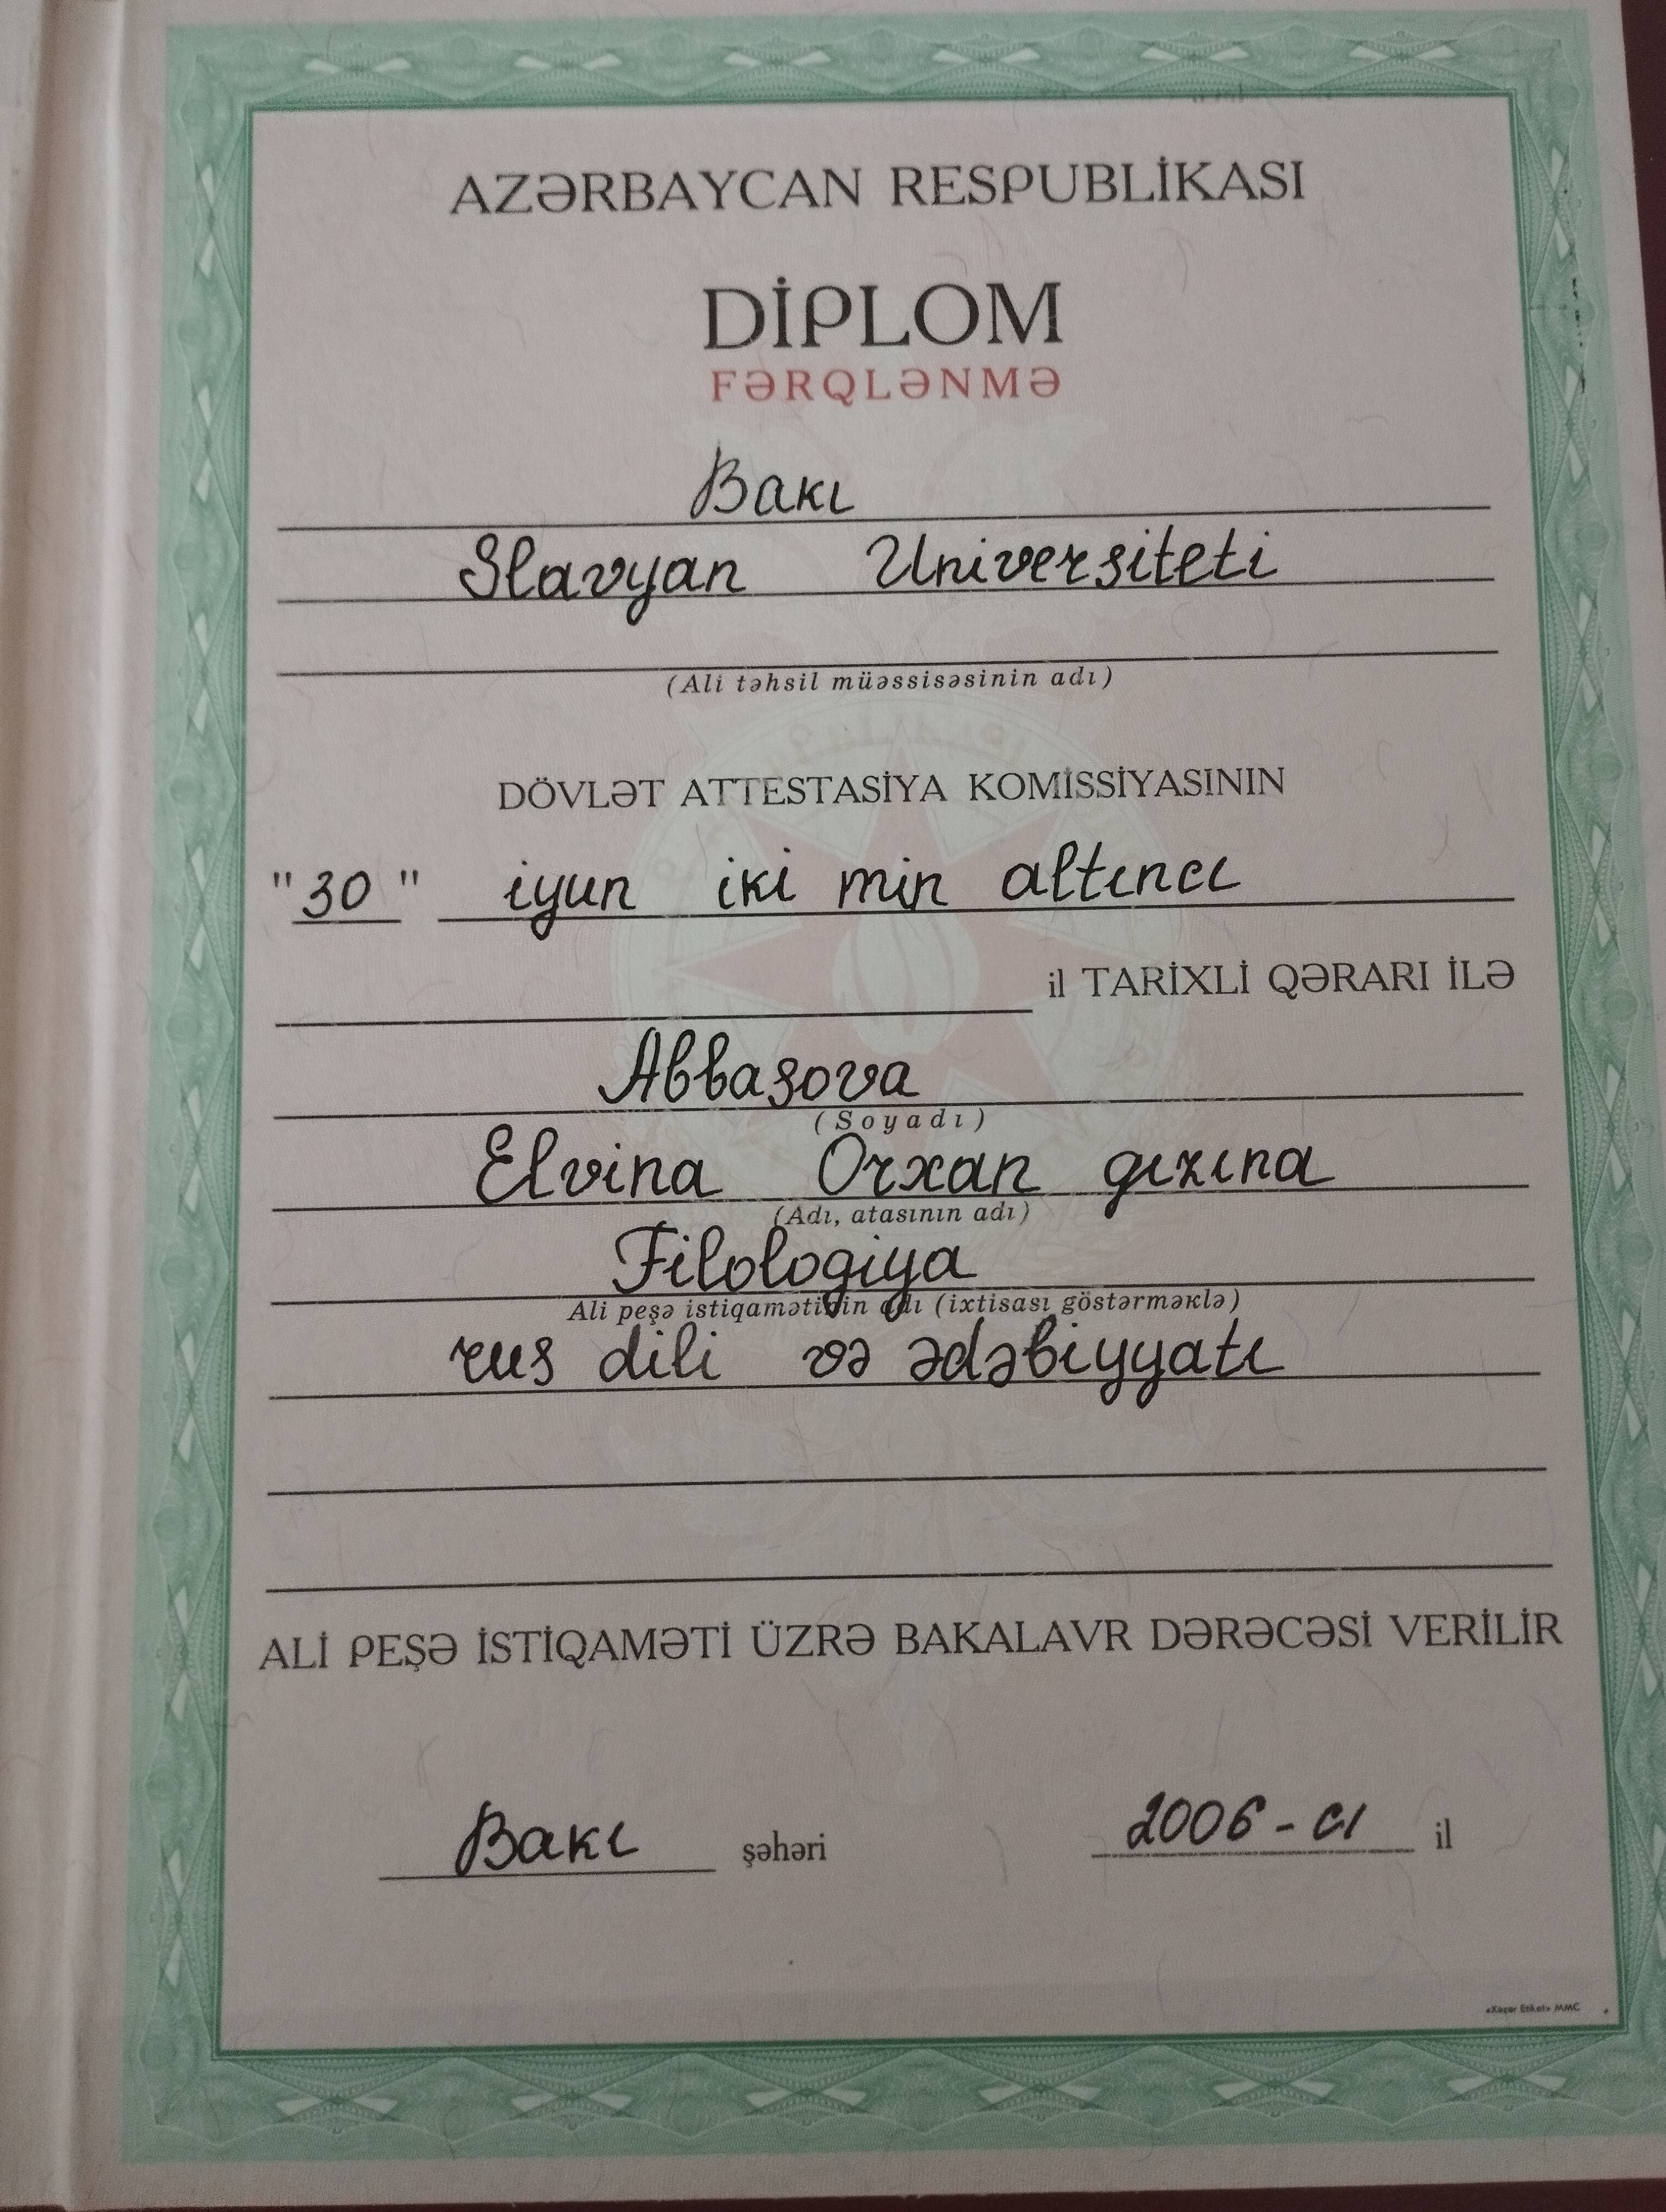 AZƏRBAYCAN RESPUBLİKASI
DİPLOM
FƏRQLƏNMƏ
Bakı
Slavyan Universiteti
(Ali təhsil müəssisəsinin adı)
DÖVLƏT ATTESTASİYA KOMİSSİYASININ
"30" iyun iki min altıncı
il TARİXLİ QƏRARI İLƏ
Abbasova
(Soyadı)
Elvina Orxan qızına
(Adı, atasının adı)
Filologiya
Ali peşə istiqamətinin adı (ixtisası göstərməklə)
rus dili və ədəbiyyatı
ALİ PEŞƏ İSTİQAMƏTİ ÜZRƏ BAKALAVR DƏRƏCƏSİ VERİLİR
Bakı şəhəri 2006-cı il
Etiket» MMC